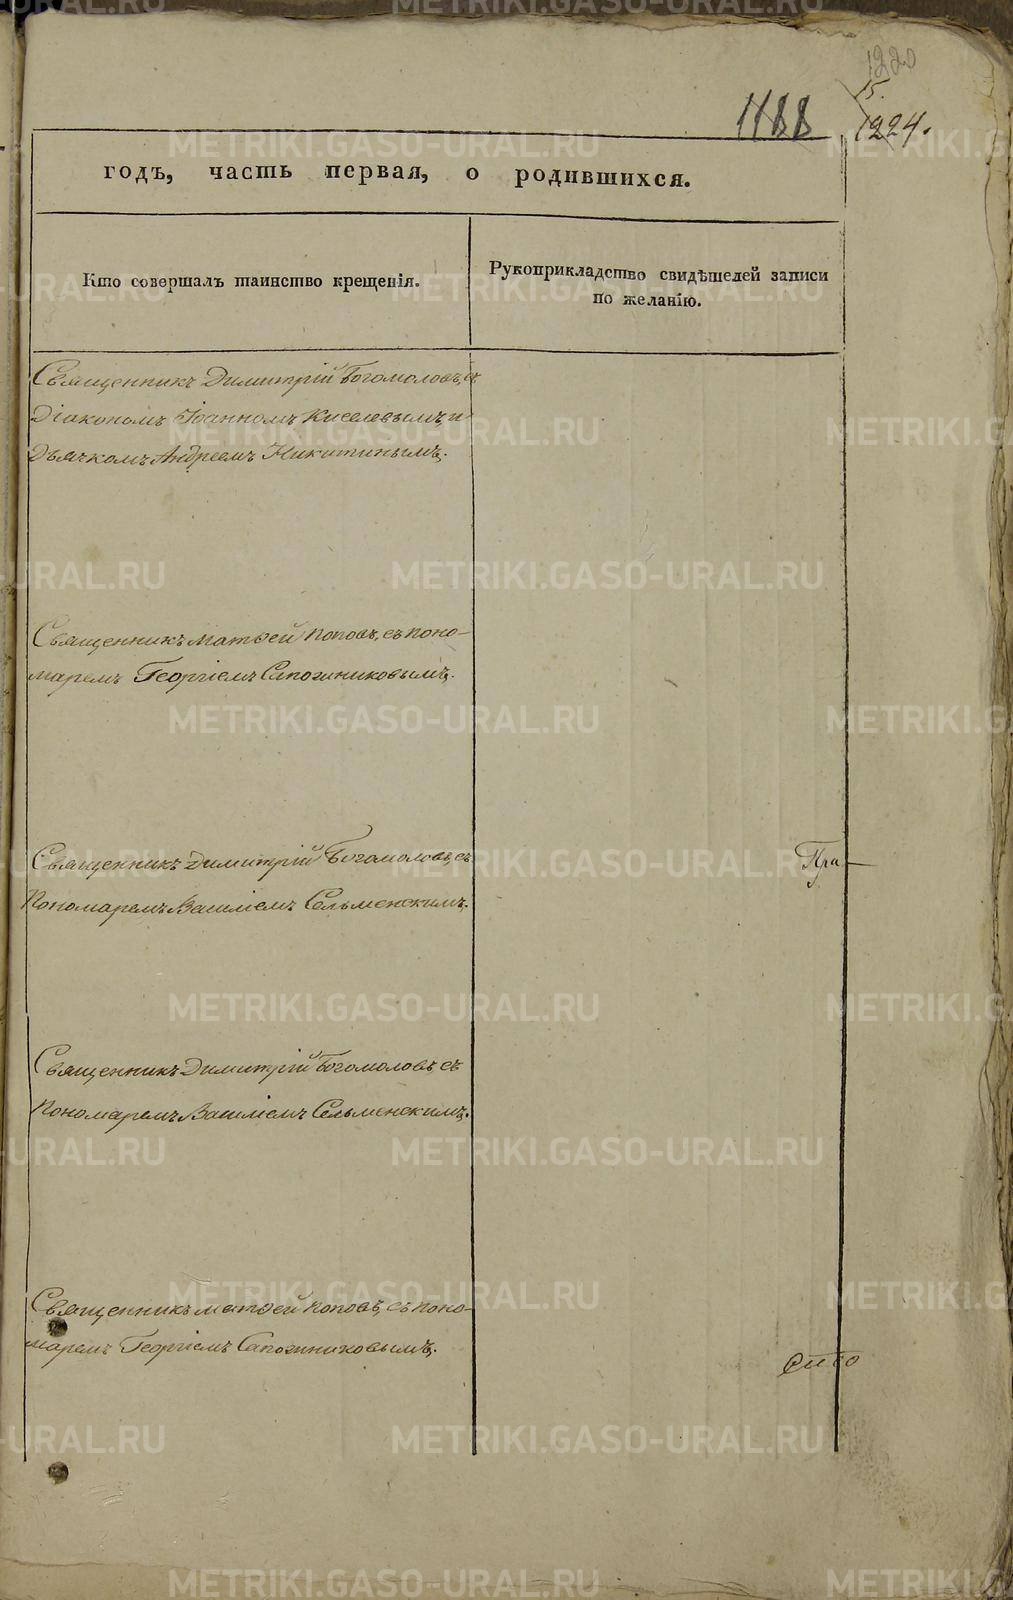 1220
15.
1188
1224.
годъ, часть первая, о родившихся.
Кто совершалъ таинство крещенія.
Рукоприкладство свидѣтелей записи
по желанію.
Священникъ Димитрій Богомоловъ, съ
Діакономъ Іоанномъ Киселевымъ, и
Дьячкомъ Андреемъ Никитинымъ.
Священникъ Матѳей Поповъ, съ поно-
маремъ Георгіемъ Сапожниковымъ.
Священникъ Димитрій Богомоловъ, съ
Пономаремъ Василіемъ Сельменскимъ.
Пра
Священникъ Димитрій Богомоловъ съ
Пономаремъ Василіемъ Сельменскимъ.
Священникъ Матѳей Поповъ, съ поно-
маремъ Георгіемъ Сапожниковымъ.
METRIKI.GASO-URAL.RU